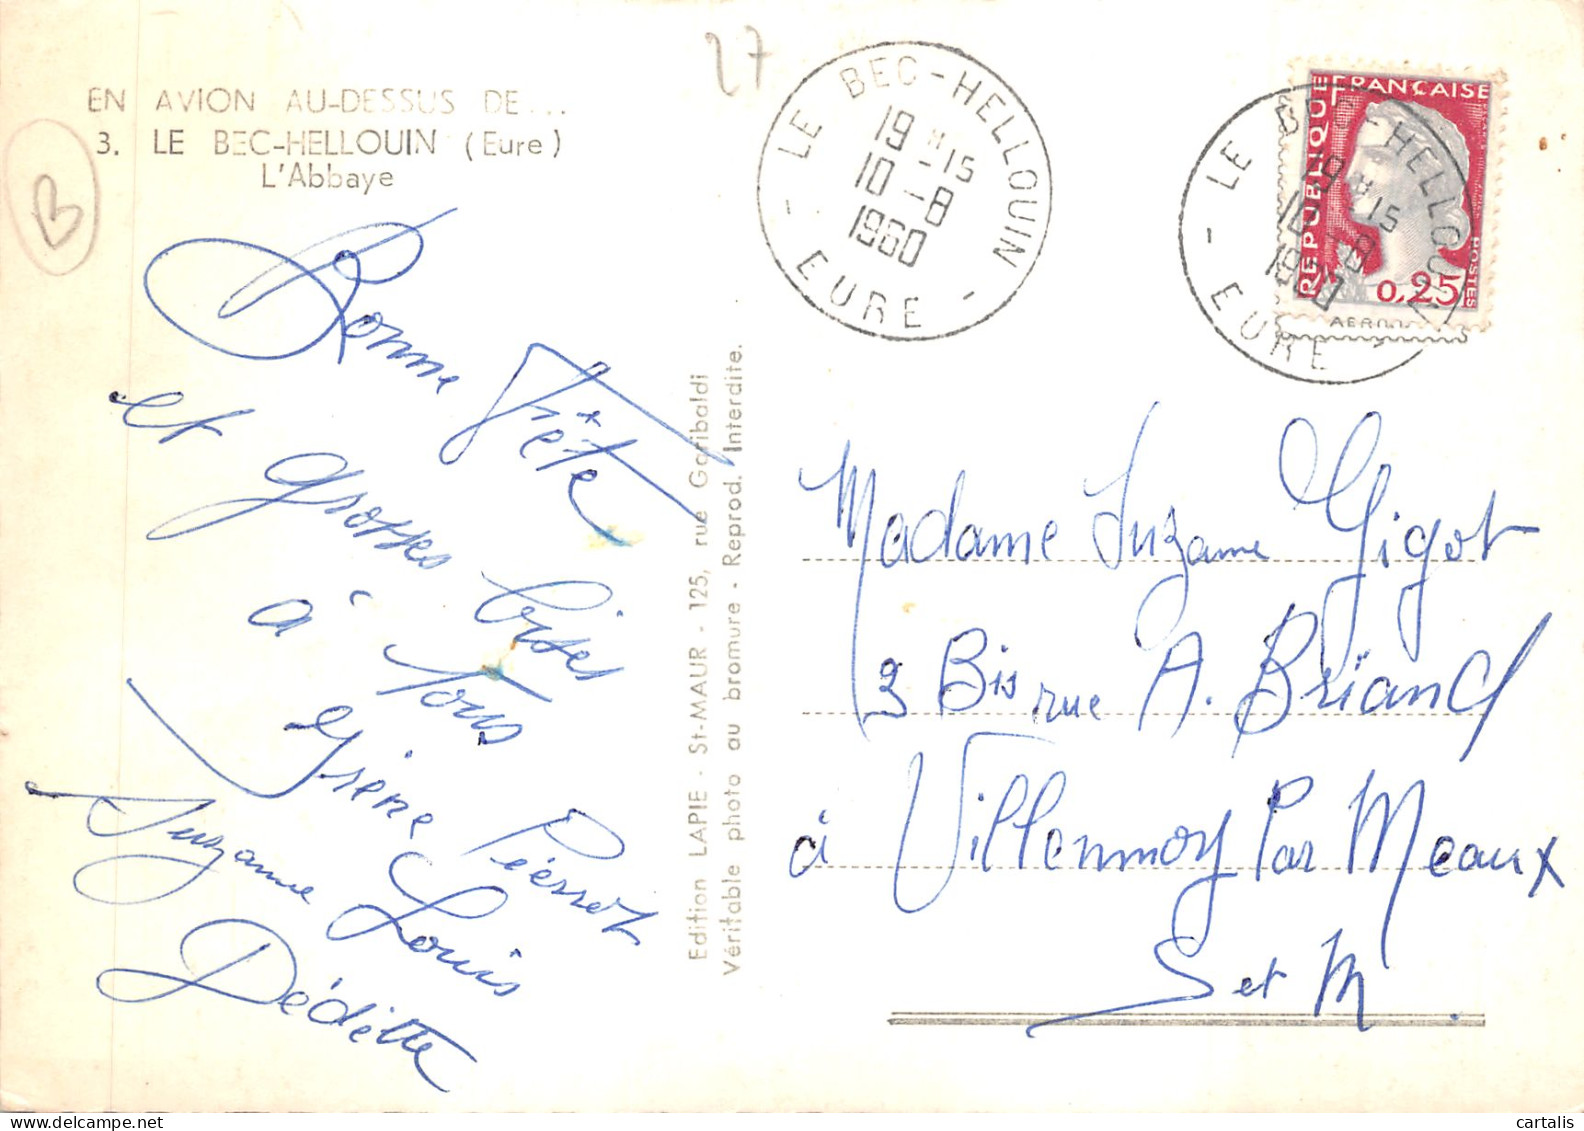 27
EN AVION AU-DESSUS DE...
3. LE BEC-HELLOUIN (Eure)
L'Abbaye
B
Bonne Fête
et grosses bises
à tous
Irène Pierrot
Suzanne Louis
Dédette
Edition LAPIE - St-MAUR - 125, rue Garibaldi
Véritable photo au bromure - Reprod. Interdite.
LE BEC-HELLOUIN
19 H -15
10 -8
1960
- EURE -
LE BEC-HELLOUIN
19 H -15
10 -8
1960
- EURE -
REPUBLIQUE FRANÇAISE
POSTES
0,25
Madame Suzanne Gigot
3 Bis rue A. Briand
à Villenmoy Par Meaux
S et M.
cartalis